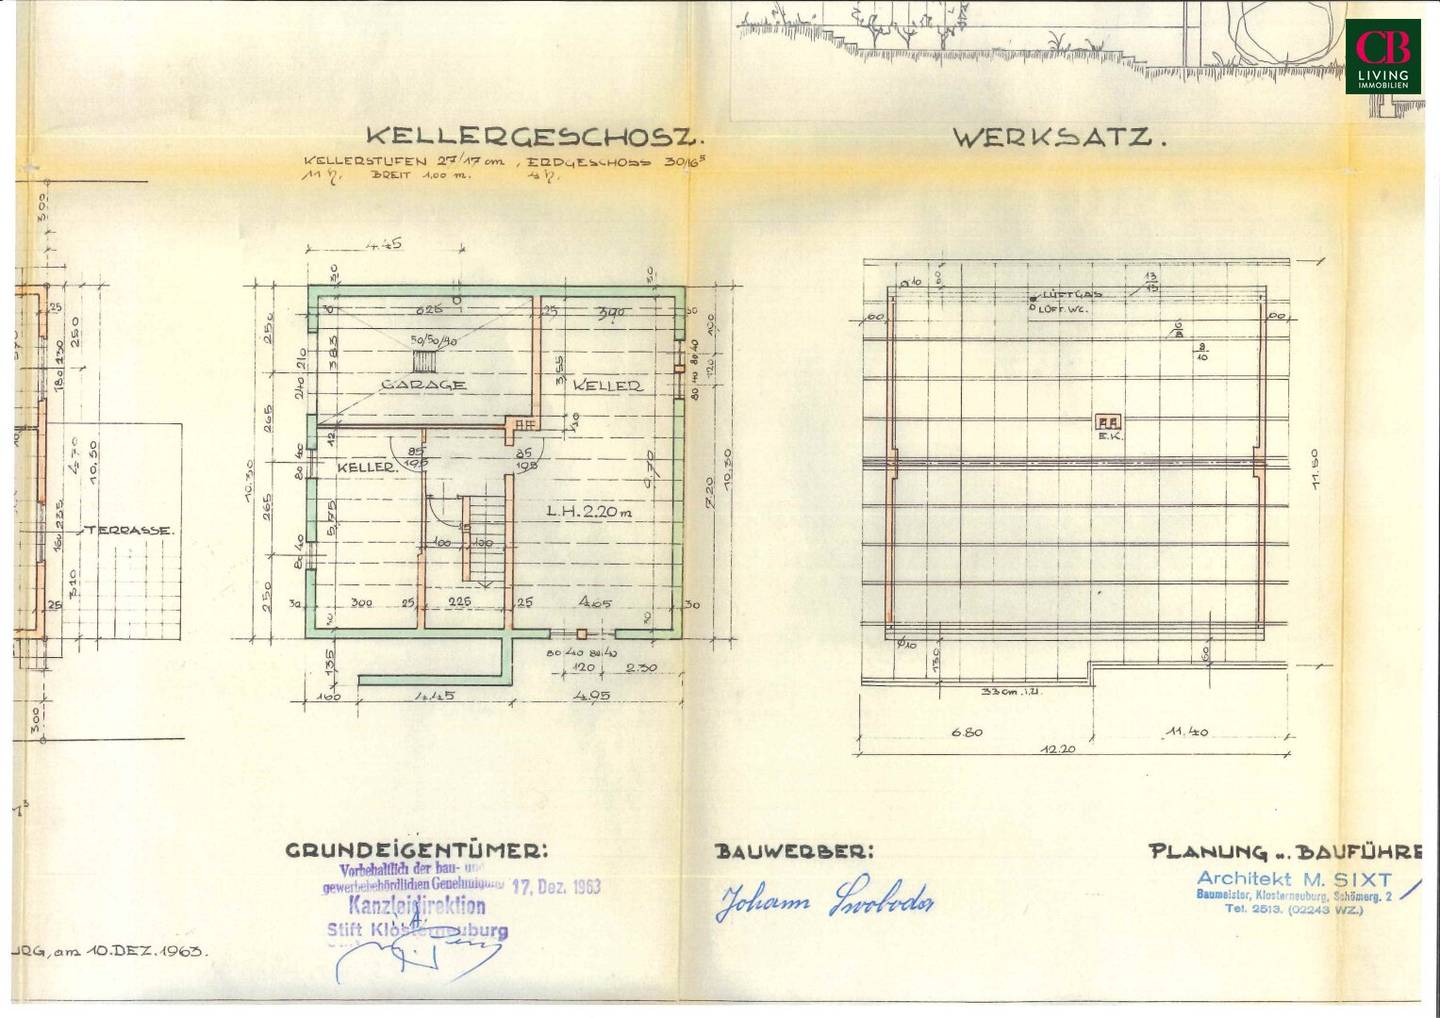 CB
LIVING
IMMOBILIEN
KELLERGESCHOSZ.
KELLERSTUFEN 27/17 cm , ERDGESCHOSS 30/16⁵
BREIT 1.00 m.
WERKSATZ.
300
4.45
30
30
625
25
390
30
50/50/40
GARAGE
KELLER
383
355
250
210
240
265
12
20
85
195
85
195
KELLER.
80 40
10.30
265
575
L.H. 2.20 m
100
100
80 40
250
30
300
25
225
25
4.05
30
30
135
80 40 80 40
120
2.30
160
4.45
4.95
100
80 40
120
80 40
7.20
10.30
25
250
180 130
470
10.50
TERRASSE.
160 235
310
25
300
ø10
60
13
LUFTGAS
LUFT. WC.
60
60
8
10
E.K.
11.50
ø10
130
60
33 cm.i.U.
6.80
11.40
12.20
GRUNDEIGENTÜMER:
Vorbehaltlich der bau- und
gewerbebehördlichen Genehmigung 17. Dez. 1963
Kanzleidirektion
i.A.
Stift Klosterneuburg
BAUWERBER:
Johann Swoboda
PLANUNG u. BAUFÜHRE
Architekt M. SIXT
Baumeister, Klosterneuburg, Schömerg. 2
Tel. 2513. (02243 WZ.)
URG, am 10.DEZ.1963.